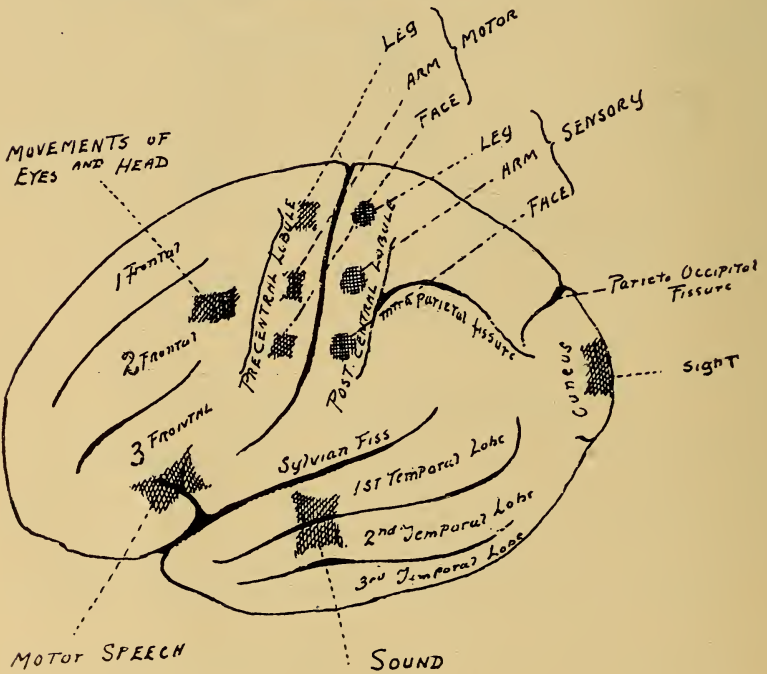 LEG
ARM
FACE
MOTOR
LEG
ARM
FACE
SENSORY
MOVEMENTS OF
EYES AND HEAD
1 Frontal
2 Frontal
3 FROINTAL
PRECENTRAL LOBULE
POST CENTRAL LOBULE
intra parietal fissure
Parieto Occipital
Fissure
Cuneus
SIGHT
Sylvian Fiss
1ST Temporal Lobe
2nd Temporal Lobe
3rd Temporal Lobe
MOTOR SPEECH
SOUND